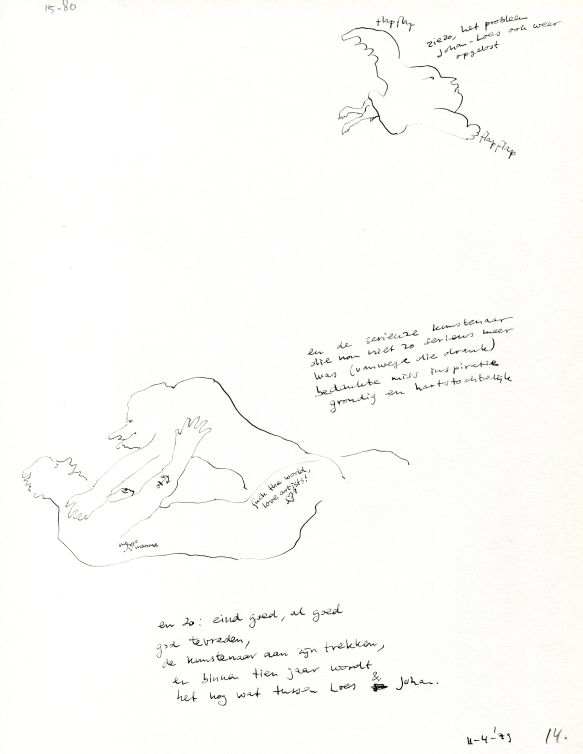 15-80
flap flap
ziezo, het probleem
Johan-Loes ook weer
opgelost
flap flap
en de serieuze kunstenaar
die nou niet zo serieus meer
was (vanwege die drank)
bedankte miss inspiratie
grondig en hartstochtelijk
fuck the world,
love artists!
mamma
en zo: eind goed, al goed
god tevreden,
de kunstenaar aan zijn trekken,
en binnen tien jaar wordt
het nog wat tussen Loes & Johan.
11-4-'79 14.